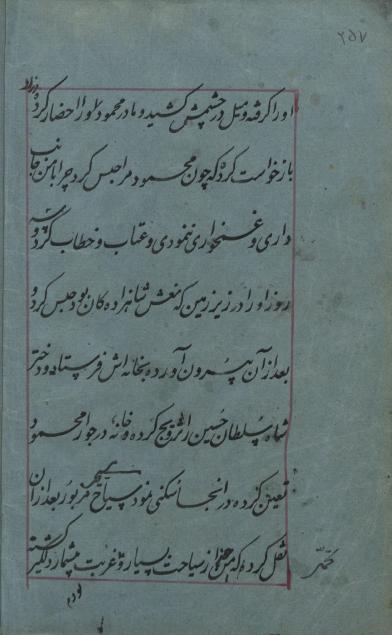 ۲۵۷
او را گرفته و میل در چشمش کشید و مادر محمود او را احضار کرد و از او
بازخواست کرد که چون محمود مرا حبس کرد چرا با من جانب
داری و غمخواری ننمودی و عتاب و خطاب کرد و سه
روز او را در زیر زمین که نعش شاهزاده کان بود حبس کرد و
بعد از آن بیرون آورده بخانه اش فرستاد و دختر
شاه سلطان حسین را تزویج کرده و خانه در جوار محمود
تعین کرده در آنجا سکنی نمود سیاح مزبور بعد از آن
نقل کرده که من از سیاحت بسیار و غربت بیشمار دلگیر گشته